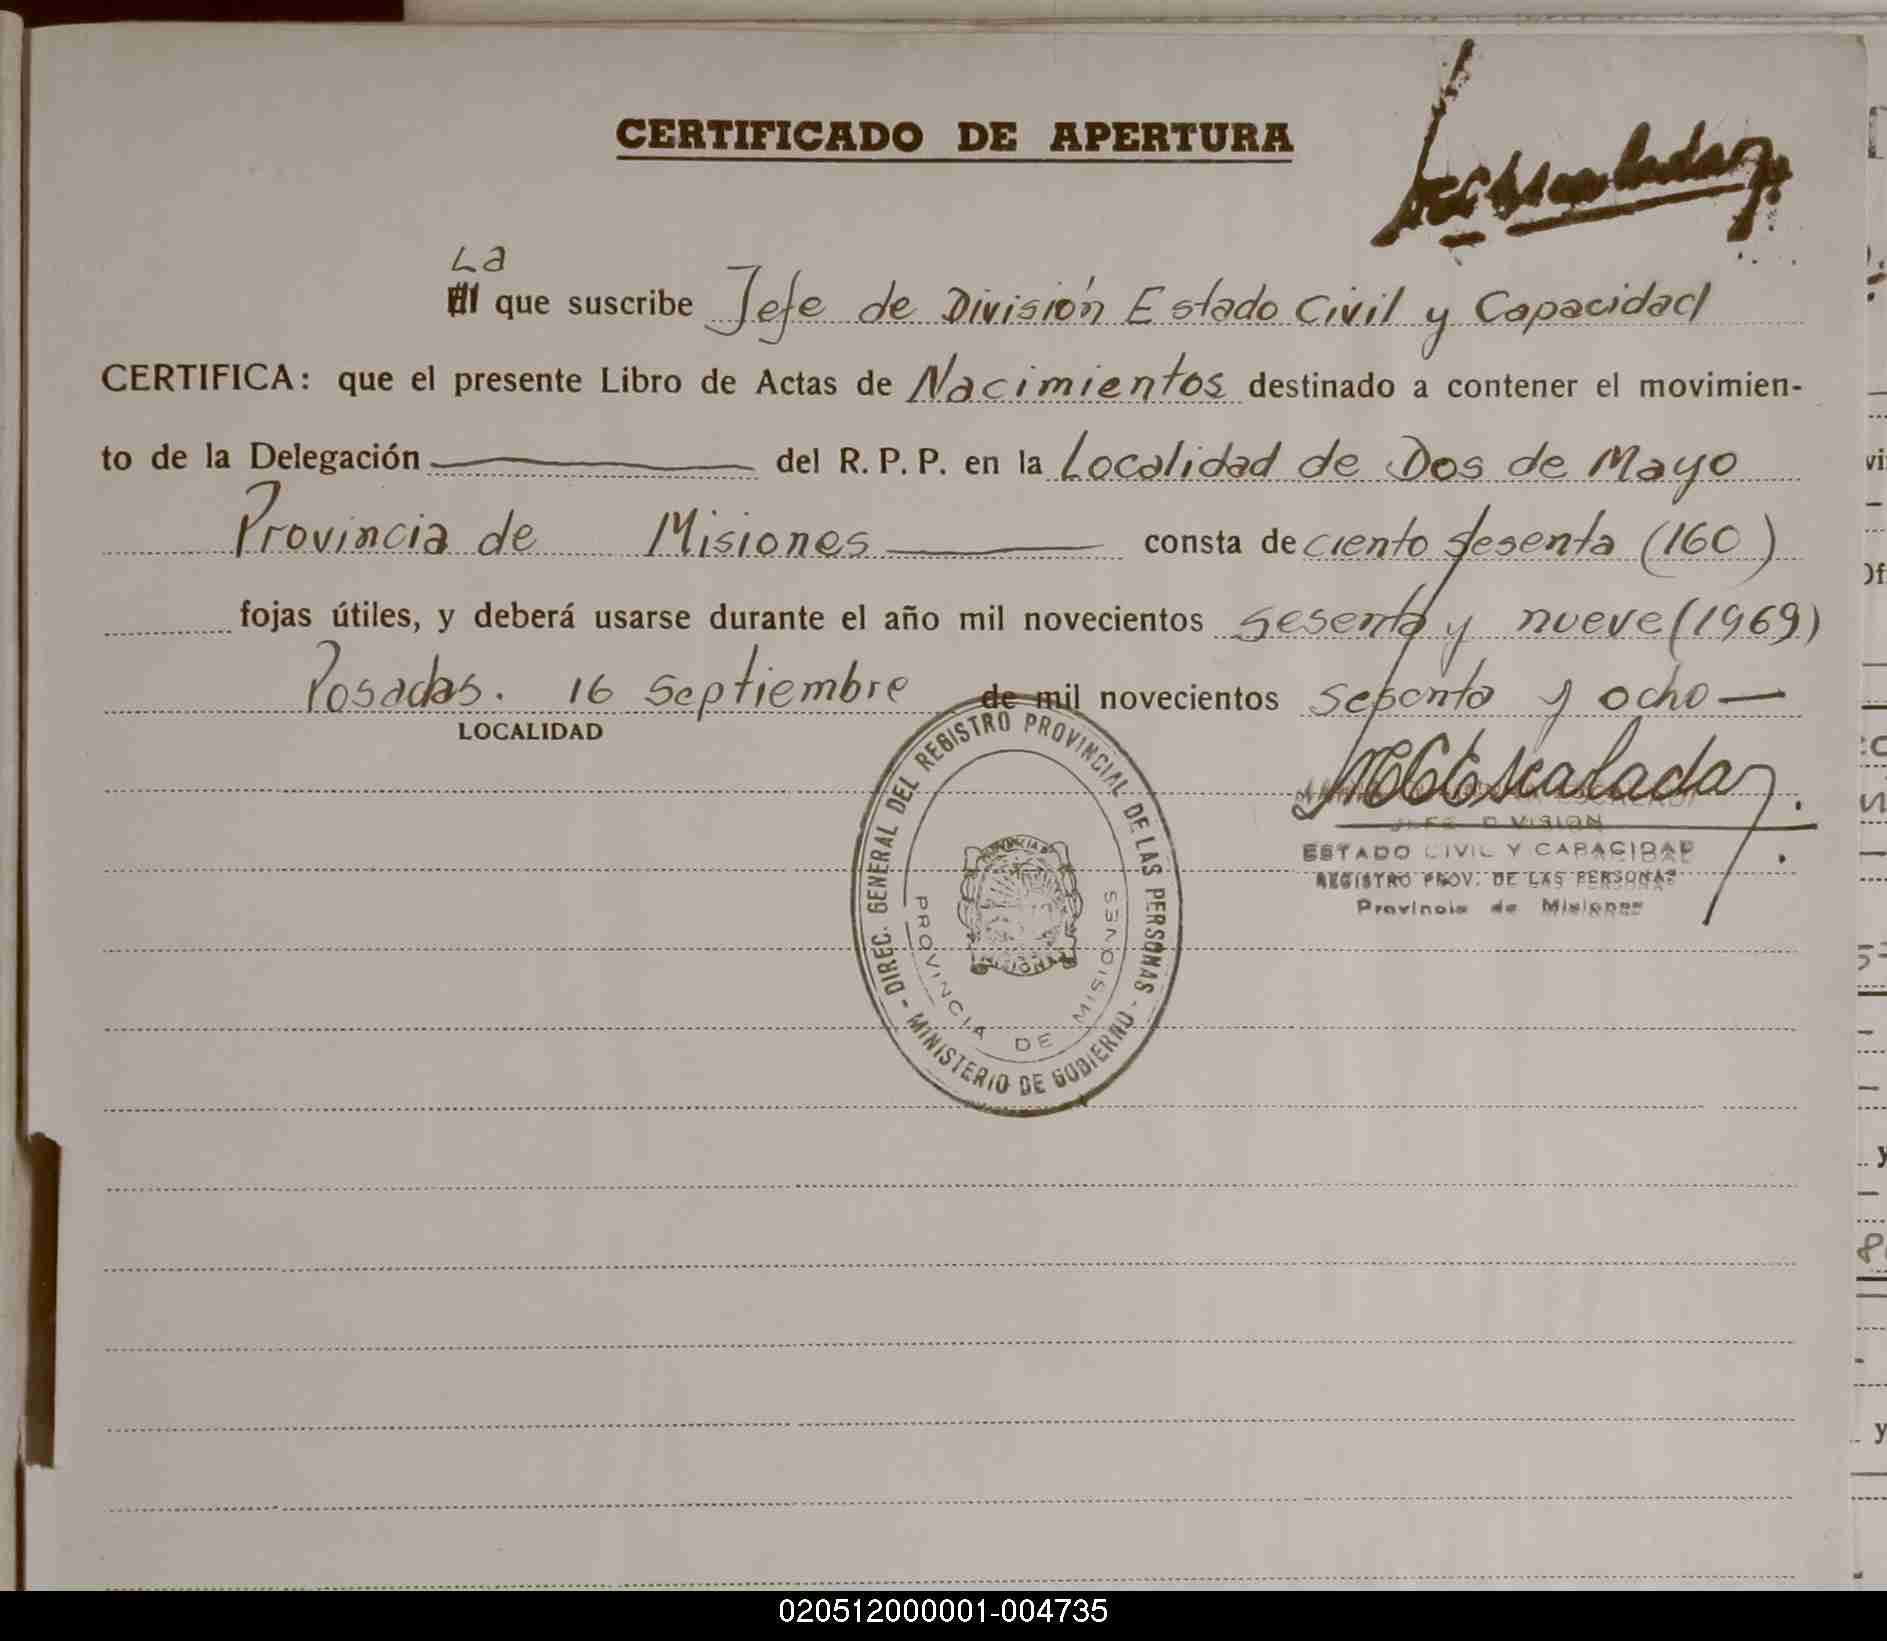 CERTIFICADO DE APERTURA
La
El que suscribe Jefe de División Estado Civil y Capacidad
CERTIFICA: que el presente Libro de Actas de Nacimientos destinado a contener el movimien-
to de la Delegación del R. P. P. en la Localidad de Dos de Mayo
Provincia de Misiones consta de ciento sesenta (160)
fojas útiles, y deberá usarse durante el año mil novecientos sesenta y nueve (1969)
Posadas. 16 Septiembre de mil novecientos sesenta y ocho
LOCALIDAD
Escalada
ESCALADA
JEFE DIVISION
ESTADO CIVIL Y CAPACIDAD
REGISTRO PROV. DE LAS PERSONAS
Provincia de Misiones
DIREC. GENERAL DEL REGISTRO PROVINCIAL DE LAS PERSONAS - MINISTERIO DE GOBIERNO -
PROVINCIA DE MISIONES
020512000001-004735